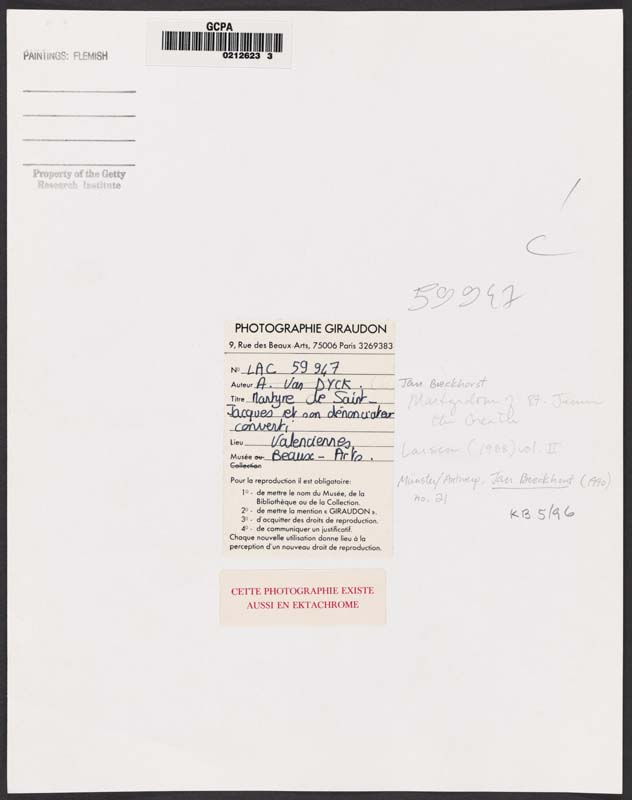 PAINTINGS: FLEMISH
GCPA
0212623 3
Property of the Getty
Research Institute
59947
PHOTOGRAPHIE GIRAUDON
9, Rue des Beaux-Arts, 75006 Paris 3269383
N° LAC 59 947
Auteur A. Van DYCK.
Titre Martyre de Saint-
Jacques et son dénonciateur
converti
Lieu Valenciennes
Musée ou Beaux-Arts.
Collection
Pour la reproduction il est obligatoire:
1° - de mettre le nom du Musée, de la
Bibliothèque ou de la Collection.
2° - de mettre la mention « GIRAUDON ».
3° - d'acquitter des droits de reproduction.
4° - de communiquer un justificatif.
Chaque nouvelle utilisation donne lieu à la
perception d'un nouveau droit de reproduction.
Jan Boeckhorst
Martyrdom of St. James
the Greater
Larsen (1988) vol. II
Münster/Antwerp, Jan Boeckhorst (1990)
no. 21
KB 5/96
CETTE PHOTOGRAPHIE EXISTE
AUSSI EN EKTACHROME